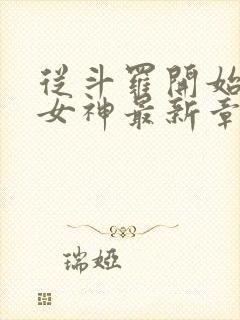 從斗羅開始
女神最新章
瑞婭